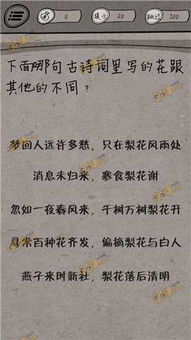 0
提示
20
跳过
100
下面哪句古诗词里写的花跟
其他的不同？
梦回人远许多愁，只在梨花风雨处
消息未归来，寒食梨花谢
忽如一夜春风来，千树万树梨花开
寻常百种花齐发，偏摘梨花与白人
燕子来时新社，梨花落后清明